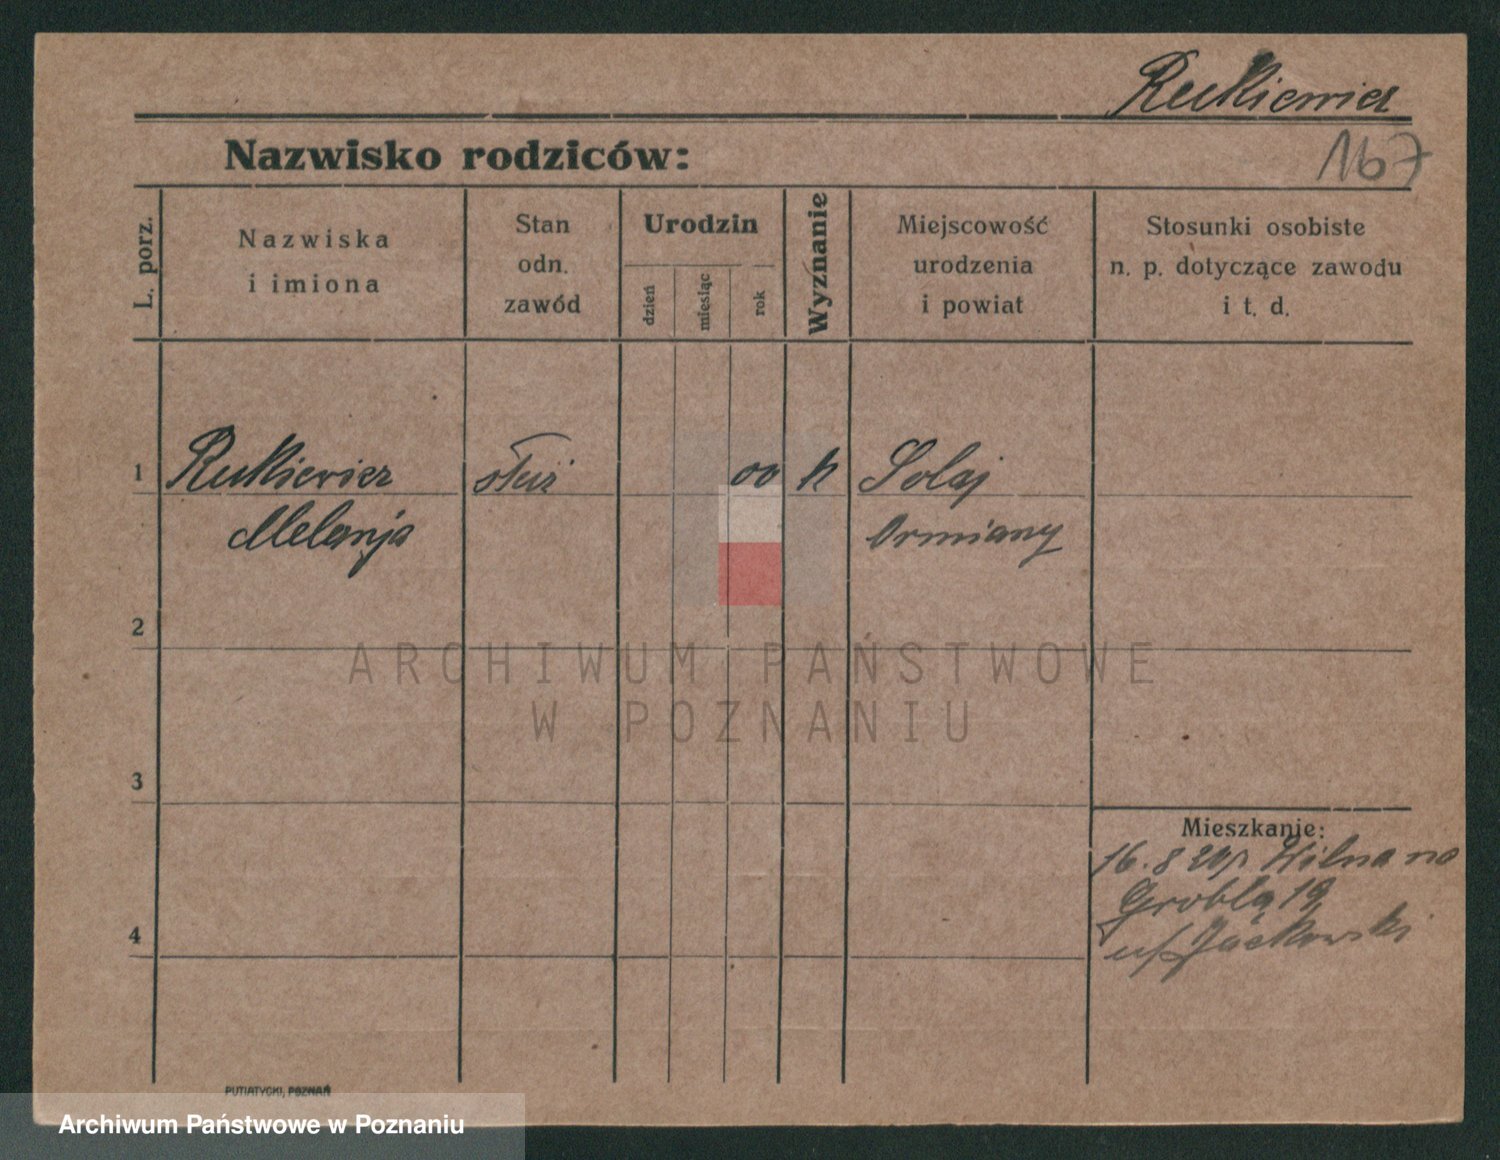 Rukiewicz
167
Nazwisko rodziców:
L. porz.
Nazwiska
i imiona
Stan
odn.
zawód
Urodzin
dzień
miesiąc
rok
Wyznanie
Miejscowość
urodzenia
i powiat
Stosunki osobiste
n. p. dotyczące zawodu
i t. d.
1
Rukiewicz
służ
00
k
Solaj
Melanja
Ormiany
2
ARCHIWUM PAŃSTWOWE
W POZNANIU
3
Mieszkanie:
16.8 20 Wilna na
Groblą 19
u/p Jackowski
4
PUTIATYCKI, POZNAŃ
Archiwum Państwowe w Poznaniu